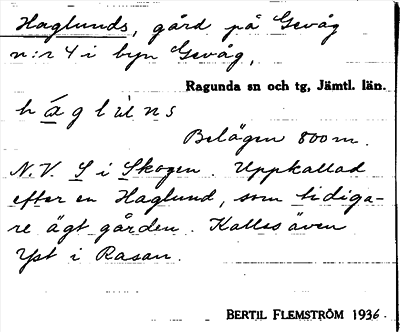 Haglunds, gård på Gevåg
n:r 4 i byn Gevåg,
Ragunda sn och tg, Jämtl. län.
háglùns
Belägen 800 m.
N.V. S i Skogen. Uppkallad
efter en Haglund, som tidiga-
re ägt gården. Kallas även
Yst i Rasan.
BERTIL FLEMSTRÖM 1936